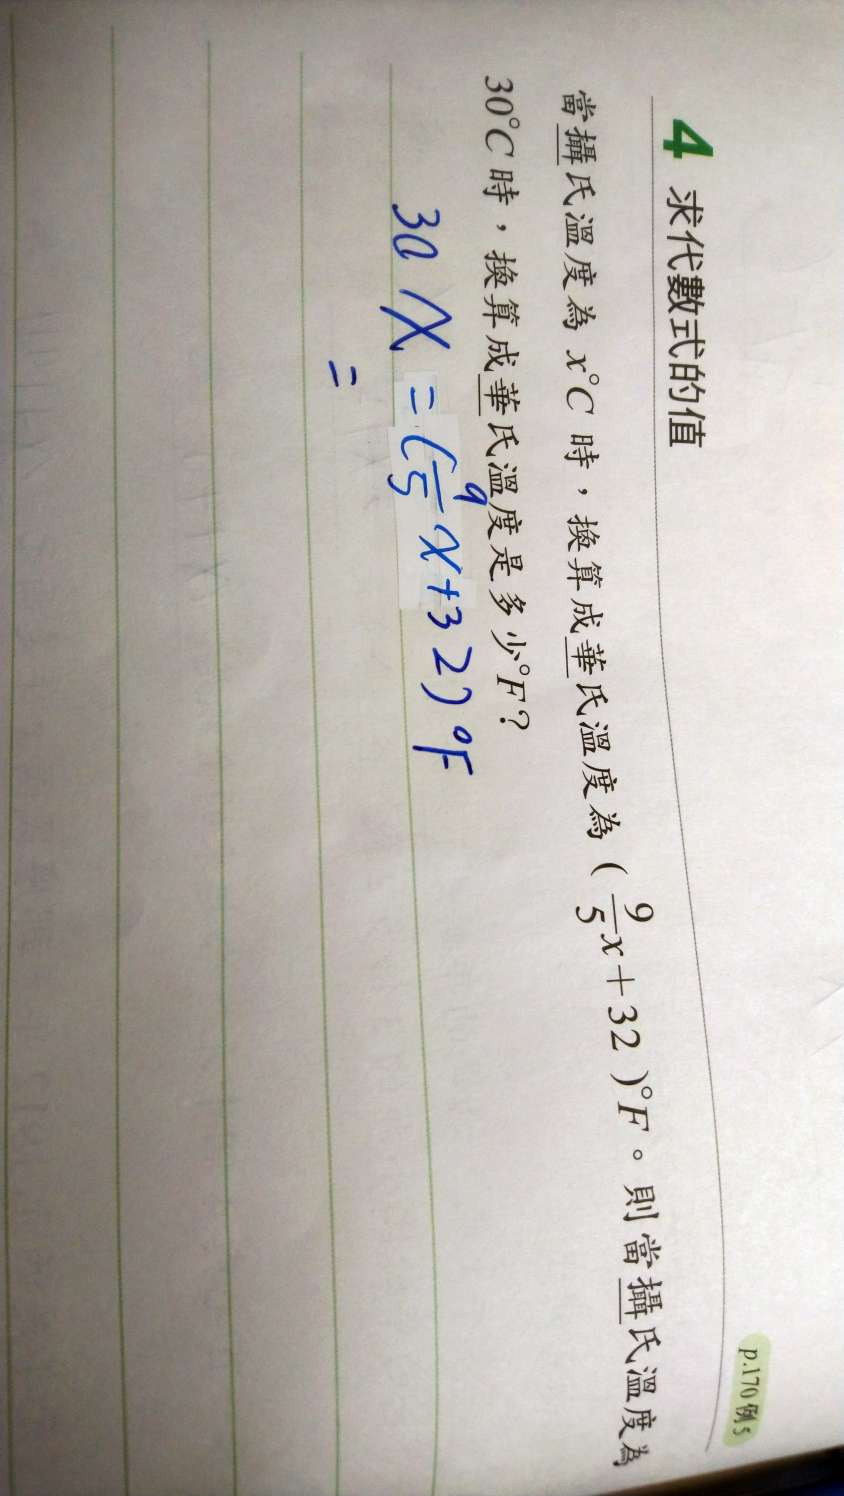 p.170 例5
4 求代數式的值
當攝氏溫度為 x°C 時，換算成華氏溫度為 ( 9/5 x＋32 )°F。則當攝氏溫度為
30°C 時，換算成華氏溫度是多少°F？
30 x = ( 9/5 x+32)°F
=